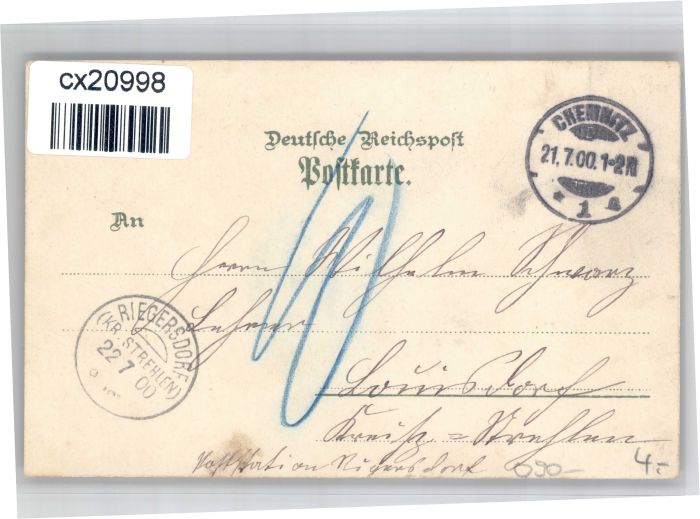 cx20998
Deutsche Reichspost
Postkarte.
CHEMNITZ
21.7.00.1-2N
* 1 a
An
Herrn Wilhelm Schwarz
Lehrer
RIEGERSDORF
(KR. STREHLEN)
22 7 00
10
Louisdorf
Kreis=Strehlen
Poststation Rigersdorf
4.-